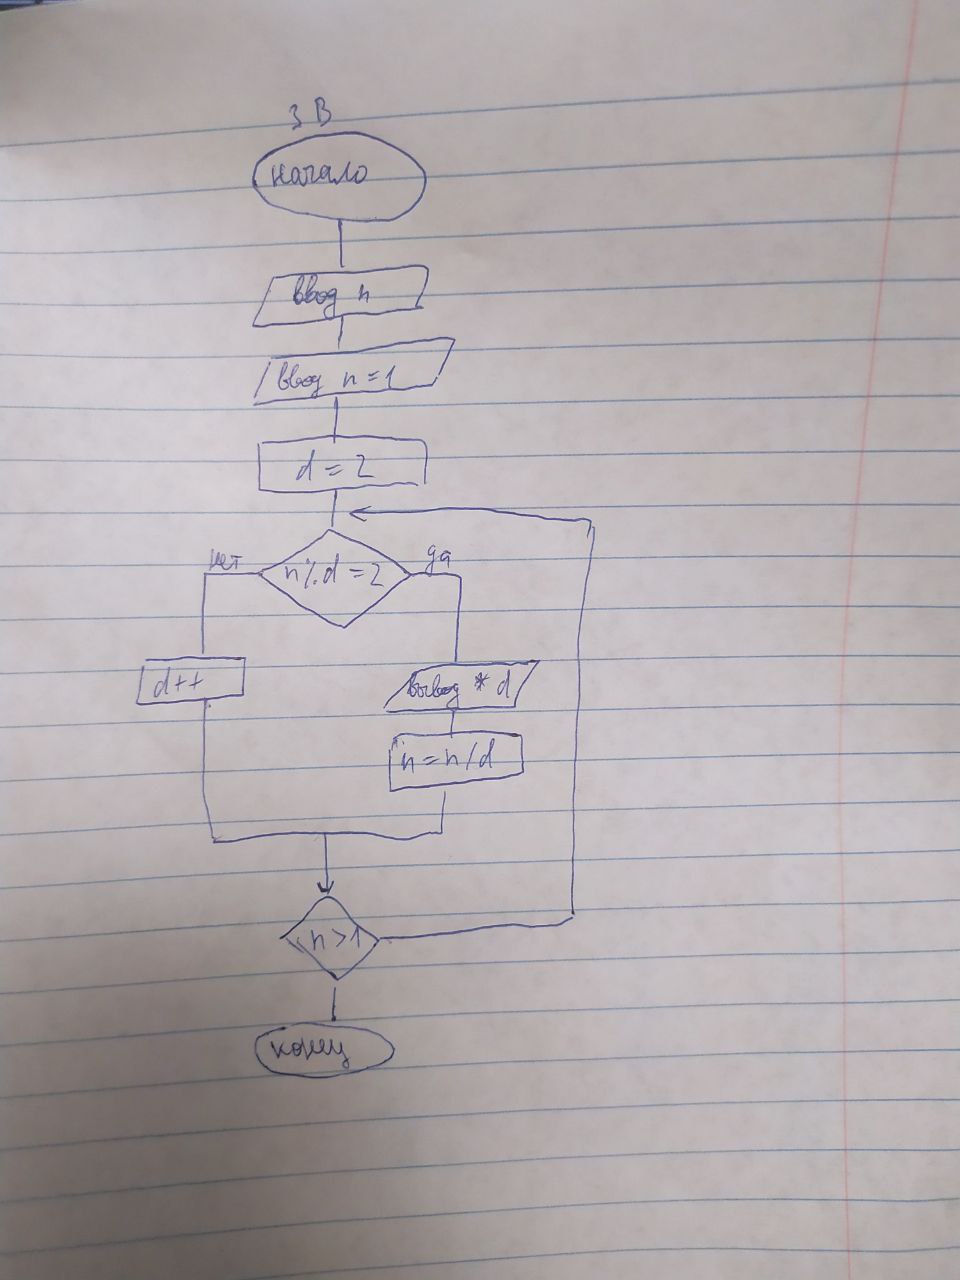 3 В
начало
ввод n
ввод n = 1
d = 2
нет n % d = 2 да
d++
вывод * d
n = n / d
n > 1
конец